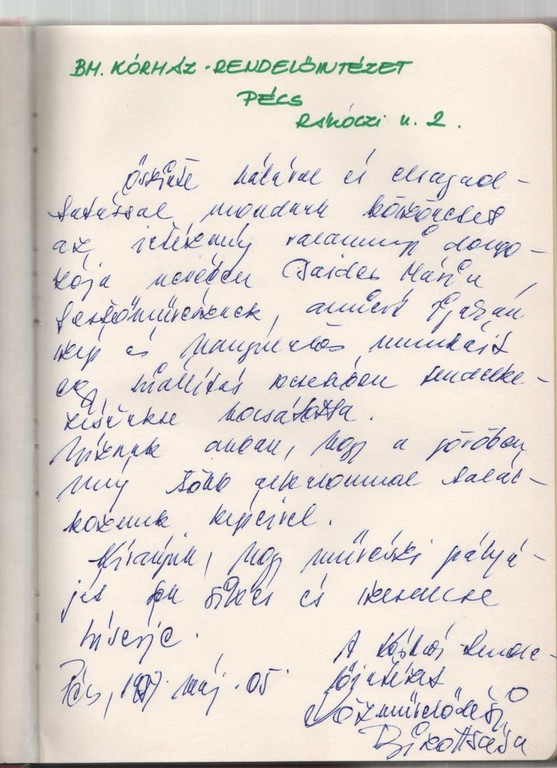 BM. KÓRHÁZ - RENDELŐINTÉZET
PÉCS
RÁKÓCZI u. 2.
Őszinte hálával és elragad-
tatással mondunk köszönetet
az intézmény valamennyi dolgo-
zója nevében Mária
festőművésznek, amiért igazán
szép és hangulatos munkáit
egy kiállítás keretében rendelke-
zésünkre bocsátotta.
Bízunk abban, hogy a jövőben
még több alkalommal talál-
kozunk képeivel.
Kívánjuk, hogy művészi pályá-
ját sok siker és szerencse
kísérje.
Pécs, 1987. máj. 05.
A Kórház Rende-
lőintézet
Közművelődési
Bizottsága